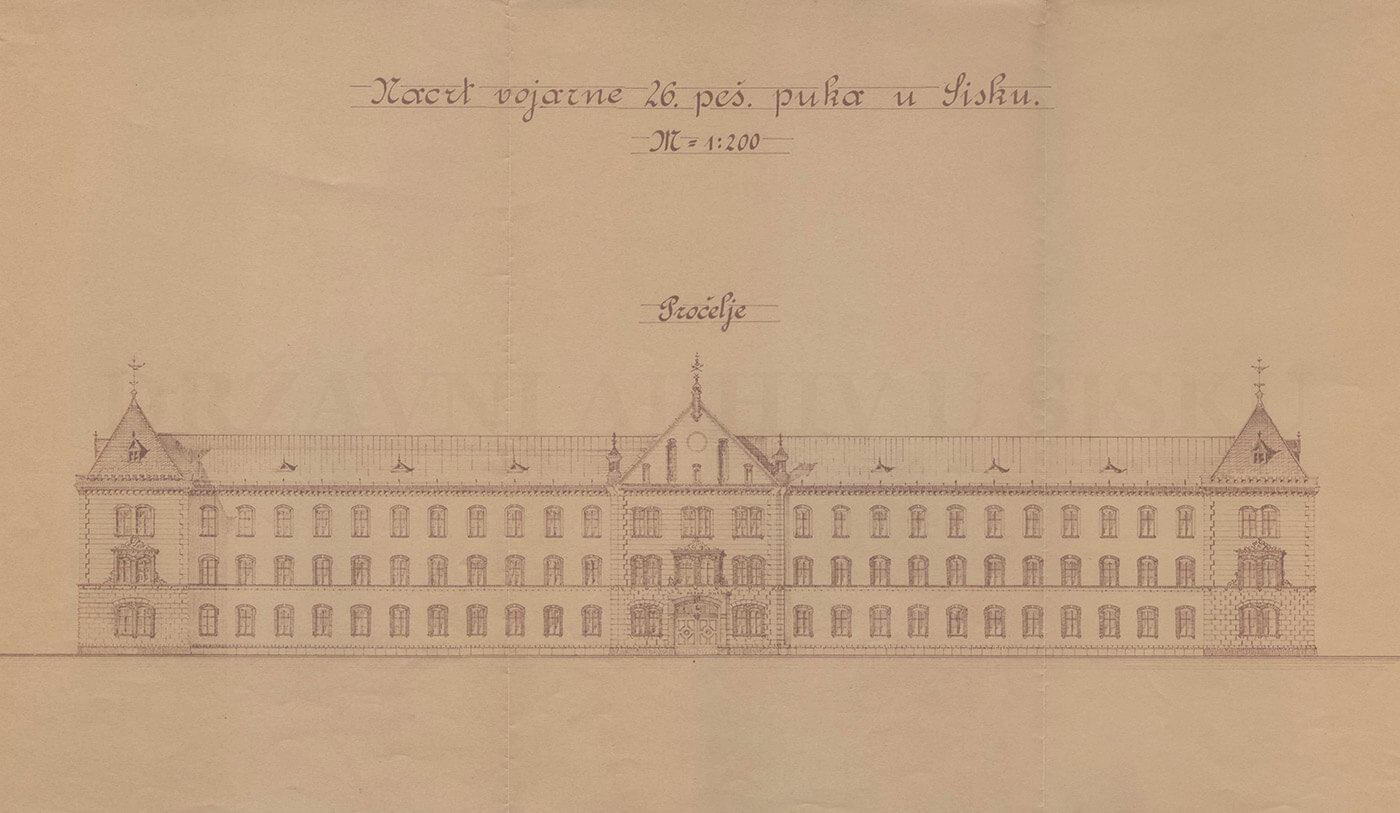 Nacrt vojarne 26. peš. puka u Sisku.
M = 1:200
Pročelje
DRŽAVNI ARHIV U SISKU